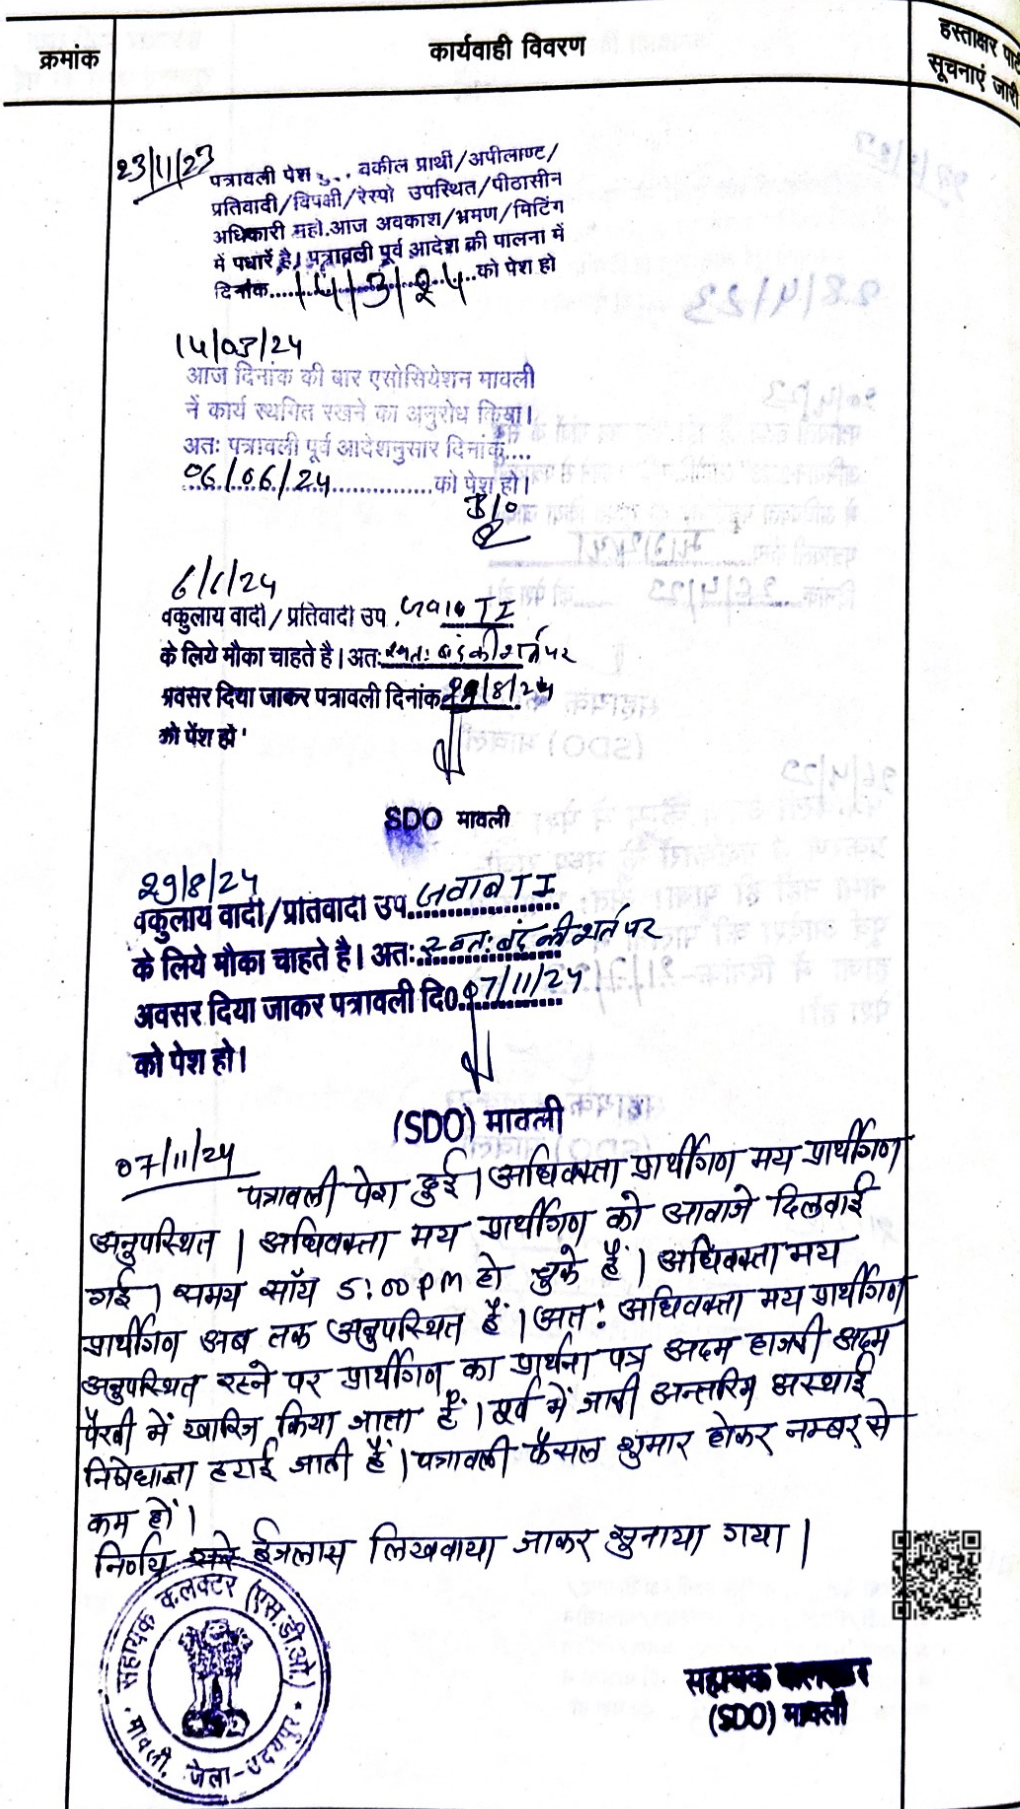 क्रमांक
कार्यवाही विवरण
हस्ताक्षर
सूचनाएं जारी
23/11/23
पत्रावली पेश वकील प्रार्थी/अपीलाण्ट/
प्रतिवादी/विपक्षी/रेस्पो उपस्थित/पीठासीन
अधिकारी महो.आज अवकाश/भ्रमण/मिटिंग
में पधारें है। पत्रावली पूर्व आदेश की पालना में
दिनांक......14/3/24......को पेश हो
14/03/24
आज दिनांक की बार एसोसियेशन मावली
नें कार्य स्थगित रखने का अनुरोध किया।
अतः पत्रावली पूर्व आदेशनुसार दिनांक....
06/06/24..................को पेश हो।
6/6/24
वकुलाय वादी/प्रतिवादी उप. जवाब TI
के लिये मौका चाहते है। अतः स्वतः बंद की शर्त पर
अवसर दिया जाकर पत्रावली दिनांक 29/8/24
को पेश हो
SDO मावली
29/8/24
वकुलाय वादी/प्रतिवादी उप..जवाब TI
के लिये मौका चाहते है। अतः स्वतः बंद की शर्त पर
अवसर दिया जाकर पत्रावली दि0..07/11/24
को पेश हो।
(SDO) मावली
07/11/24
पत्रावली पेश हुई। अधिवक्ता प्रार्थीगण मय प्रार्थीगण
अनुपस्थित। अधिवक्ता मय प्रार्थीगण को आवाजे दिलवाई
गई। समय साँय 5:00 PM हो चुके हैं। अधिवक्ता मय
प्रार्थीगण अब तक अनुपस्थित हैं। अतः अधिवक्ता मय प्रार्थीगण
अनुपस्थित रहने पर प्रार्थीगण का प्रार्थना पत्र अदम हाजरी अदम
पैरवी में खारिज किया जाता हैं। पूर्व में जारी अन्तरिम अस्थाई
निषेधाज्ञा हटाई जाती हैं। पत्रावली फैसल शुमार होकर नम्बर से
कम हों।
निर्णय सरे ईजलास लिखवाया जाकर सुनाया गया।
सहायक कलक्टर (एस.डी.ओ.)
मावली, जिला-उदयपुर
सहायक कलक्टर
(SDO) मावली